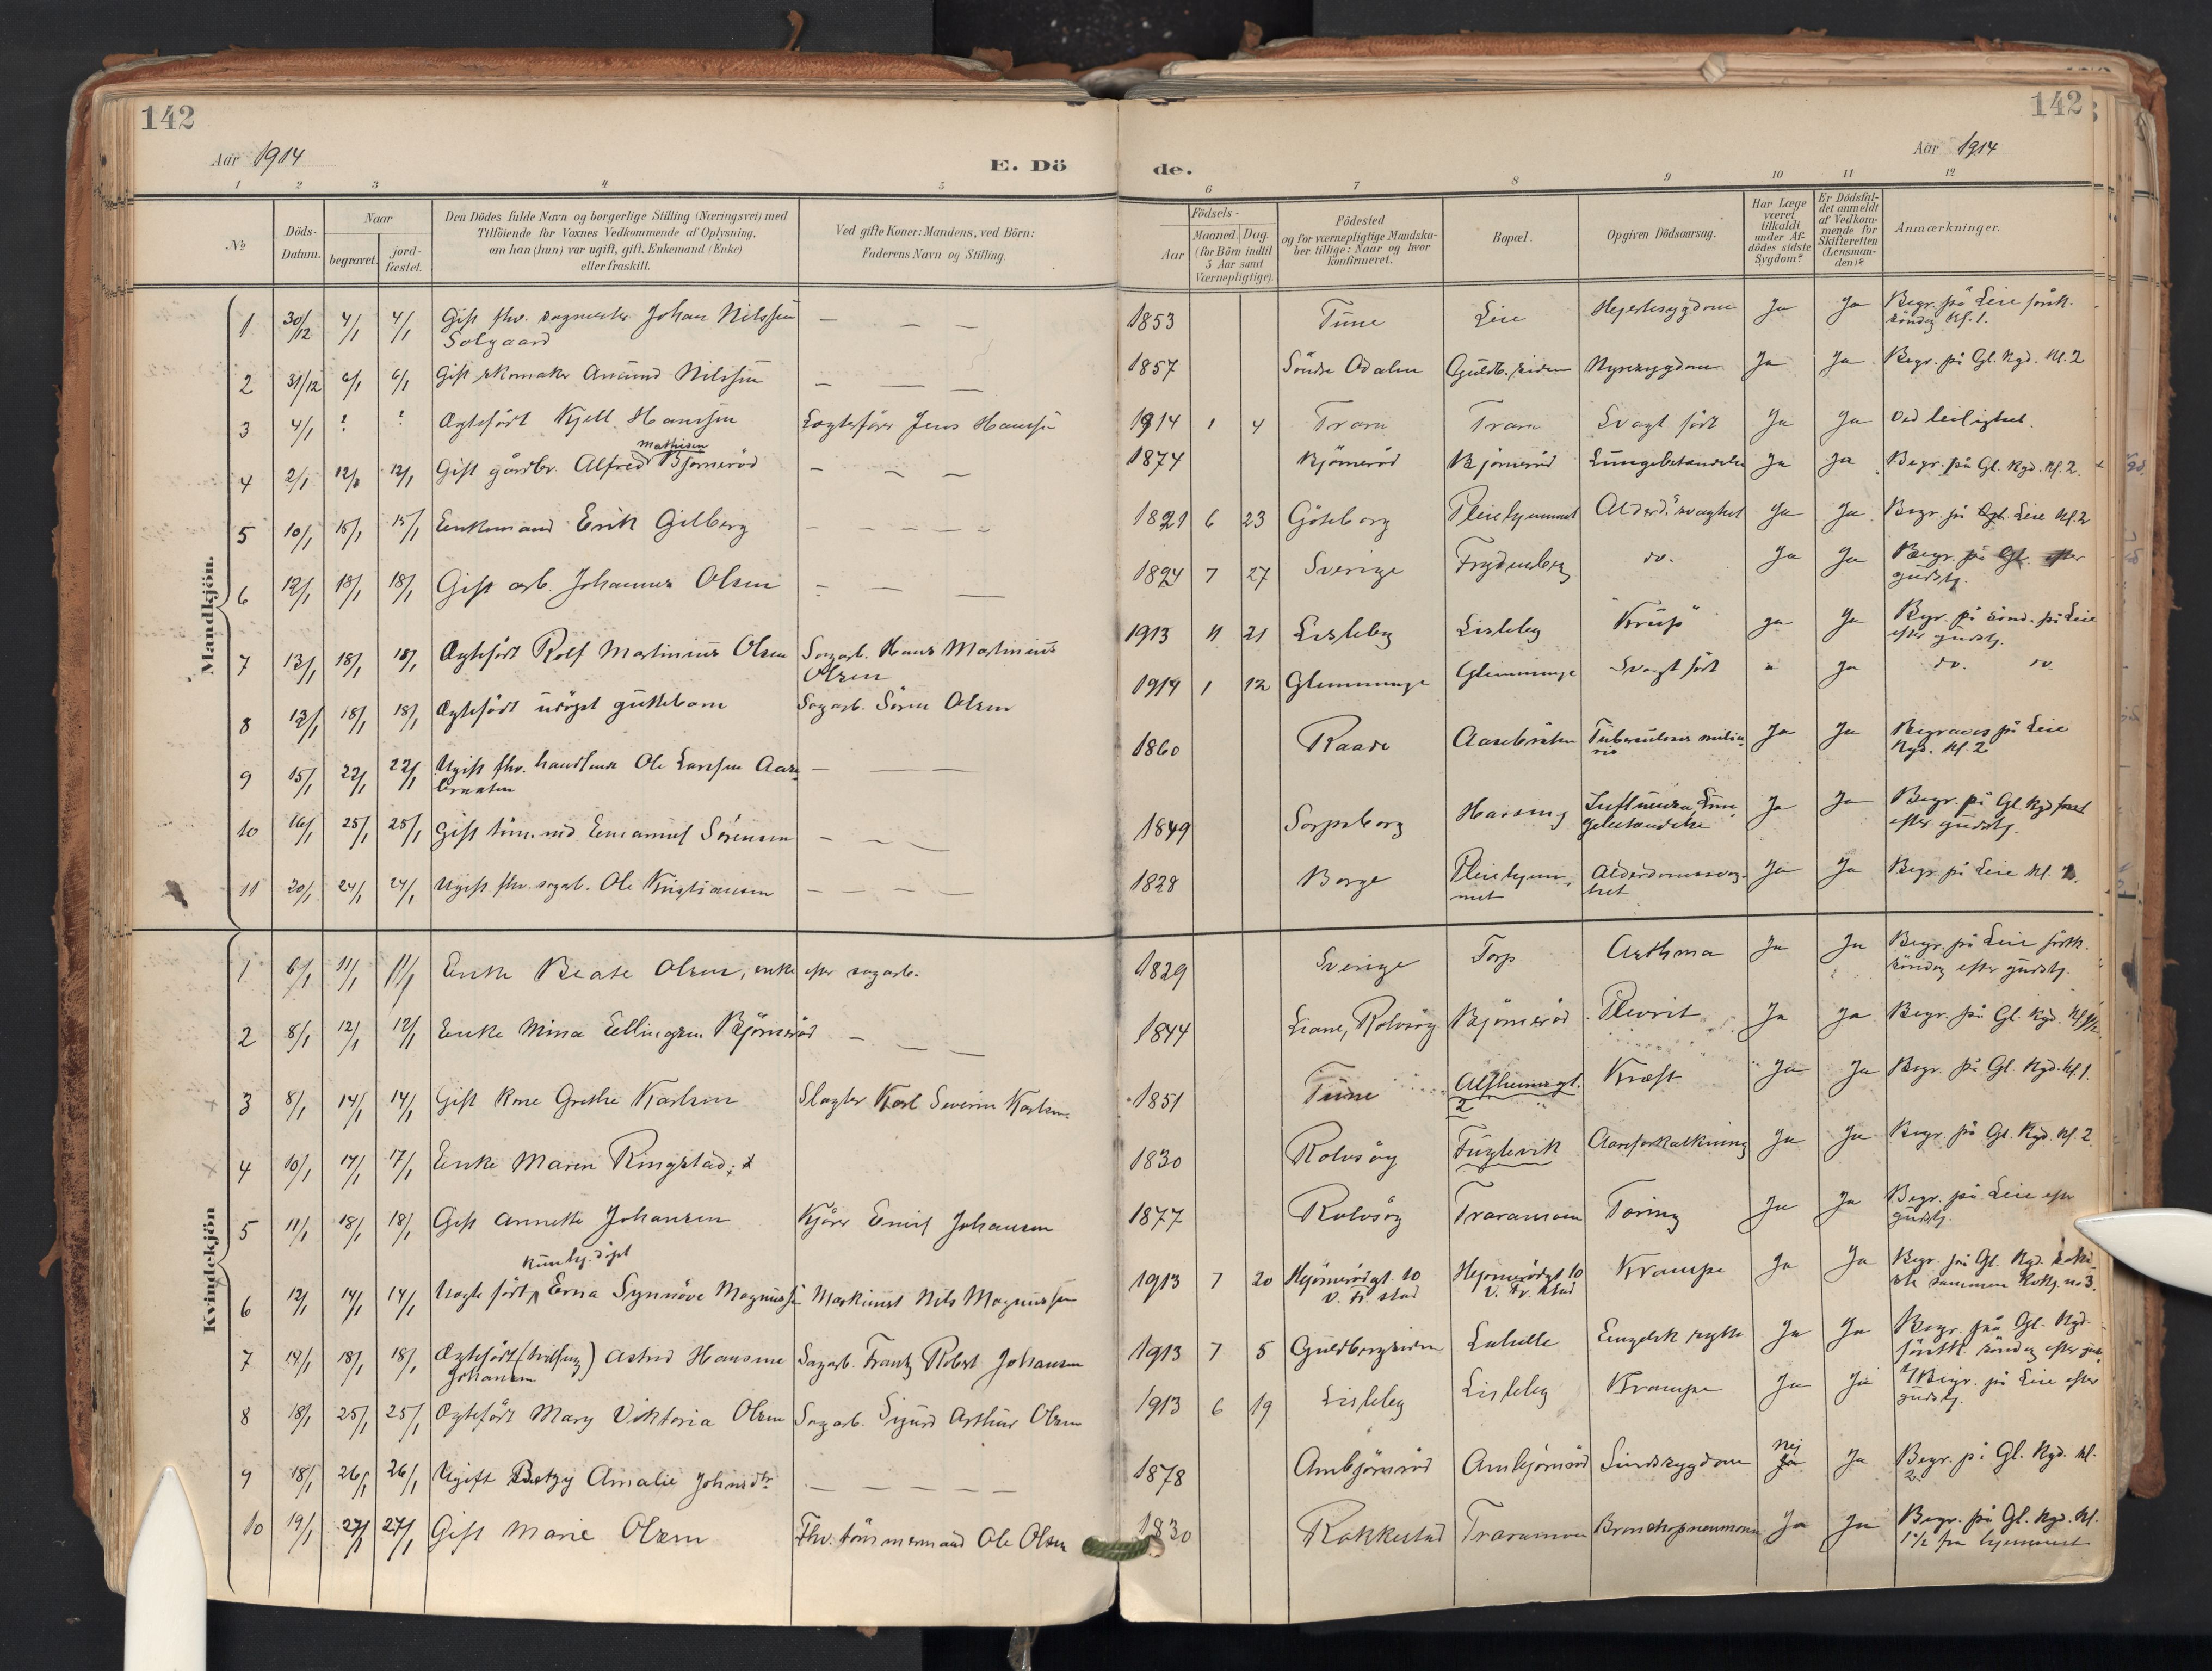 142
142
Aar 1914
E. Dö
de.
Aar 1914
1 2 3 4 5 6 7 8 9 10 11 12
№
Döds-
Datum.
Naar
begravet.
jord-
fæstet.
Den Dödes fulde Navn og borgerlige Stilling (Næringsvei) med
Tilföiende for Voxnes Vedkommende af Oplysning,
om han (hun) var ugift, gift, Enkemand (Enke)
eller fraskilt.
Ved gifte Koner: Mandens, ved Börn:
Faderens Navn og Stilling.
Födsels-
Aar
Maaned. Dag.
(for Börn indtil
5 Aar samt
Værnepligtige).
Födested
og for værnepligtige Mandska-
ber tillige: Naar og hvor
konfirmeret.
Bopæl.
Opgiven Dödsaarsag.
Har Læge
været
tilkaldt
under Af-
dödes sidste
Sygdom?
Er Dödsfal-
det anmeldt
af Vedkom-
mende for
Skifteretten
(Lensman-
den)?
Anmærkninger.
Mandkjön.
1 30/12 4/1 4/1 Gift fhv. sagmester Johan Nilssen — — — 1853 Tune Leie Hjertesygdom Ja Ja Begr. på Leie förstk.
Solgaard söndag kl. 1.
2 31/12 6/1 6/1 Gift skomaker Amund Nilssen — — — 1857 Söndre Odalen Guldb. siden Nyresygdom Ja Ja Begr. på Gl. Kgd. kl. 2
3 4/1 ? ? Ægtefödt Kjell Hanssen Jens Hanssen 1914 1 4 Trara Trara Svagt född Ja Ja Ved leilighet.
Mathisen
4 2/1 12/1 12/1 Gift gårdbr. Alfred Bjørneröd — — — 1874 Bjørneröd Bjørneröd Lungebetændelse Ja Ja Begr. på Gl. Kgd. kl. 2.
5 10/1 15/1 15/1 Enkemand Erik Gilberg — — — 1821 6 23 Göteborg Pleiehjemmet Alderdsvaghet Ja Ja Begr. på Leie kl. 2
6 12/1 18/1 18/1 Gift arb. Johannes Olsen — — — 1824 7 27 Sverige Frydenberg do. Ja Ja Begr. på Gl. efter
gudstj.
7 13/1 18/1 18/1 Ægtefödt Rolf Martinius Olsen Sagarb. Hans Martinius 1913 11 21 Lisleby Lisleby "Krup" Ja Ja Begr. på sönd. på Leie
Olsen efter gudstj.
8 12/1 18/1 18/1 Ægtefödt udöpt guttebarn Sagarb. Sören Olsen 1914 1 12 Glemminge Glemminge Svagt född " Ja do. do.
9 15/1 22/1 22/1 Ugift fhv. handlende Ole Larssen Aase — — — 1860 Raade Aasebråten Tuberculosis milia- Ja Ja Begraves på Leie
braaten ris Kgd. kl. 2
10 16/1 25/1 25/1 Gift töm. md. Emanuel Sörensen — — — 1849 Sarpsborg Influenza Lun- Ja Ja Begr. på Gl. Kgd
gebetændelse efter gudstj.
11 20/1 24/1 24/1 Ugift fhv. sagarb. Ole Kristiansen — — — 1828 Borge Pleiehjem- Alderdomssvag- Ja Ja Begr. på Leie kl. 2.
met het
Kvindekjön
1 6/1 11/1 11/1 Enke Beate Olsen, enke efter sagarb. 1829 Sverige Torp Asthma Ja Ja Begr. på Leie förstk.
söndag efter gudstj.
2 8/1 12/1 12/1 Enke Mina Ellingsen Bjørneröd — — — 1844 Liane, Rolvsöy Bjørneröd Plevrit Ja Ja Begr. på Gl. Kgd.
3 8/1 14/1 14/1 Gift kone Grethe Karlsen Slagter Karl Severin Karlsen 1851 Tune Kræft Ja Ja Begr. på Gl. Kgd. kl. 1.
2
4 10/1 17/1 17/1 Enke Maren Ringstad 1830 Rolvsöy Fuglevik Aareforkalkning Ja Ja Begr. på Gl. Kgd. kl. 2
5 11/1 18/1 18/1 Gift Annette Johansen Kjörer Emil Johansen 1877 Rolvsöy Traramoen Tæring Ja Ja Begr. på Leie efter
gudstj.
hjemdöpt
6 12/1 14/1 14/1 Uægte födt Erna Synnöve Magnussen Maskinist Nils Magnussen 1913 7 20 Hjörnerödgt. 10 Hjörnerödgt 10 Krampe Ja Ja Begr. på Gl. Kgd.
V. Fr. stad V. Fr. stad sammen no 3.
7 14/1 18/1 18/1 Ægtefödt (tvilling) Astrid Hansine Sagarb. Frantz Robert Johansen 1913 7 5 Guldbergsiden Labella Engelsk syke Ja Ja Begr. på Gl. Kgd.
Johansen förstk. söndag efter gud-
8 18/1 25/1 25/1 Ægtefödt Mary Viktoria Olsen Sagarb. Sigurd Arthur Olsen 1913 6 19 Lisleby Lisleby Krampe Ja Ja Begr. på Leie efter
gudstj.
9 18/1 26/1 26/1 Ugift Betzy Amalie Johnsdtr — — — 1878 Ambjörnröd Ambjörnröd Sindssygdom Nej Ja Begr. på Gl. Kgd. kl.
2.
10 19/1 27/1 27/1 Gift Marie Olsen Fhv. tömmermand Ole Olsen 1830 Rakkestad Traramoen Bronchopneumonie Ja Ja Begr. på Gl. Kgd. kl.
1 1/2 fra hjemmet